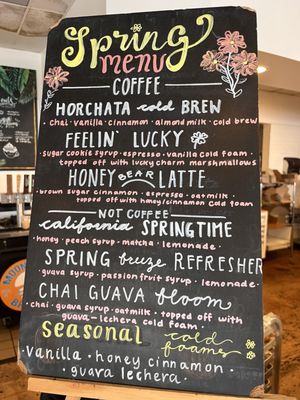 Spring
menu
COFFEE
HORCHATA cold BREW
• chai • vanilla • cinnamon • almond milk • cold brew
FEELIN' LUCKY
sugar cookie syrup • espresso • vanilla cold foam •
topped off with lucky charm marshmallows
HONEY BEAR LATTE
brown sugar cinnamon • espresso • oatmilk •
topped off with honey/cinnamon cold foam
NOT COFFEE
california SPRINGTIME
honey • peach syrup • matcha • lemonade •
SPRING breeze REFRESHER
guava syrup • passion fruit syrup • lemonade •
CHAI GUAVA bloom
chai • guava syrup • oatmilk • topped off with
guava-lechera cold foam •
seasonal cold
foams
vanilla • honey cinnamon •
guava lechera •